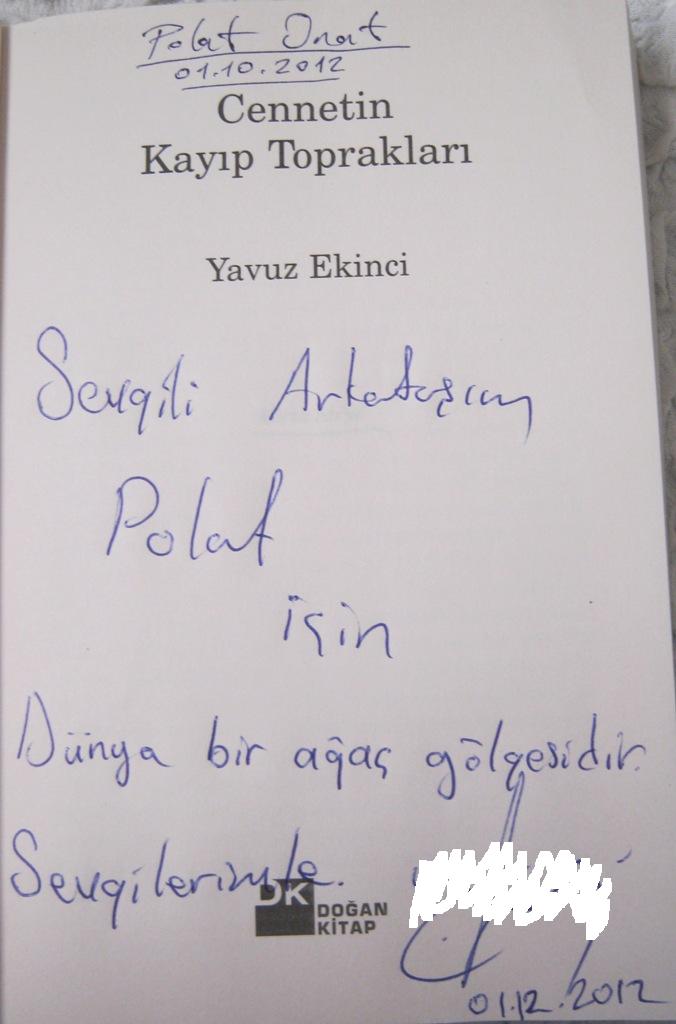 Polat Onat
01.10.2012
Cennetin
Kayıp Toprakları
Yavuz Ekinci
Sevgili Arkadaşım
Polat
için
Dünya bir ağaç gölgesidir.
Sevgilerimle.
DK DOĞAN
KİTAP
01.12.2012